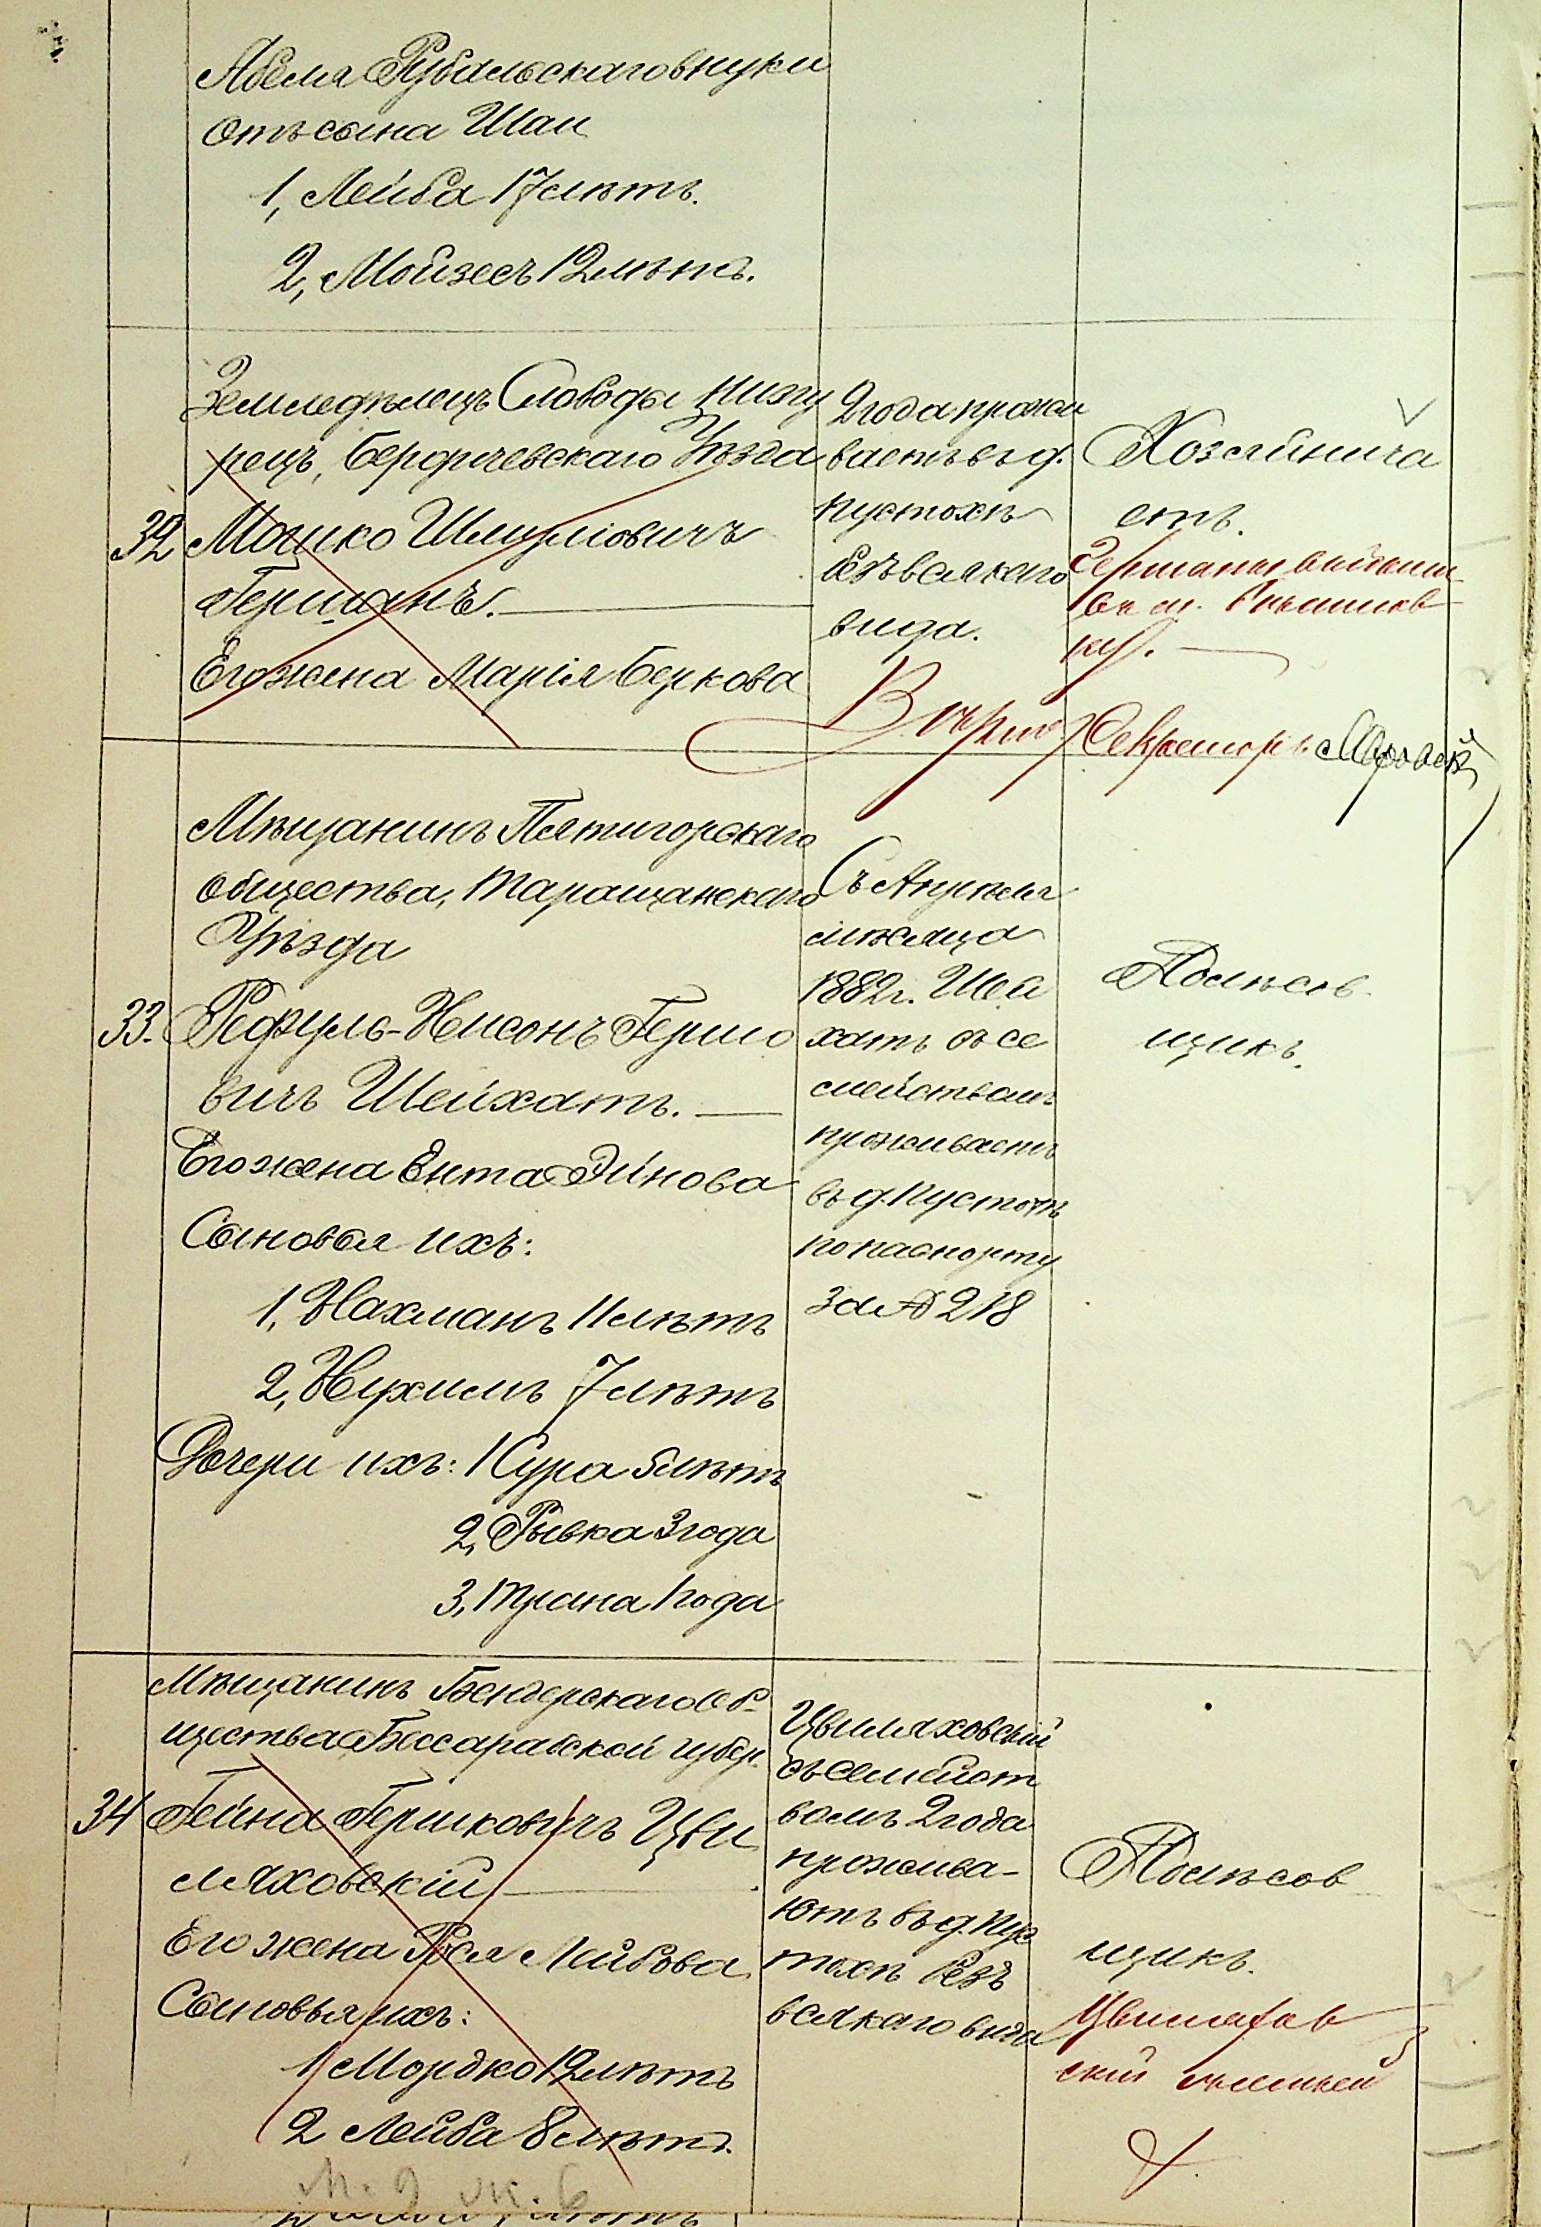 Абеля Рубальскаго внуки
отъ сына Шаи
1, Лейба 17 лѣтъ.
2, Мойзесъ 12 лѣтъ.
Земледѣлецъ Слободы Низгу
рецъ, Бердичевскаго Уѣзда
32 Мошко Шмуліовичъ
Германъ.
Его жена Марія Беркова
2 года прожи
ваетъ въ д.
Пустохѣ
безъ всякаго
вида.
Хозяйнича
етъ.
Германъ
въ м.
ку.
Вѣрно: Секретарь
Мѣщанинъ Пятигорскаго
общества, Таращанскаго
Уѣзда
33. Рефуль-Нисонъ Гершо
вичъ Шейхатъ.
Его жена Ента Эйнова
Сыновья ихъ:
1, Нахманъ 11 лѣтъ
2, Нухимъ 7 лѣтъ
Дочери ихъ: 1 Сура 5 лѣтъ
2, Рывка 3 года
3, Трана 1 года
Съ Апрѣля
мѣсяца
1882 г. Шей
хатъ съ се
мействомъ
проживаетъ
въ д. Пустохѣ
по паспорту
за № 218
Полѣсов
щикъ.
Мѣщанинъ Бендерскаго Об-
щества Бессарабской губер.
34 Гейна Гершковичъ Цви
ляховскій
Его жена Рося Лейбова
Сыновья ихъ:
1 Мордко 12 лѣтъ
2 Лейба 8 лѣтъ.
Цвиляховскій
съ семейст
вомъ 2 года
прожива-
ютъ въ д. Пус
тохѣ безъ
всякаго вида
Полѣсов
щикъ.
Цвиляхов
скій
м. 9 ж. 6